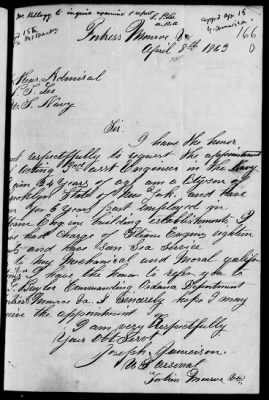 Mr. Kellogg to inquire examine & report
166
Fortress Monroe Va
April 8th 1863
Rear Admiral
S. Lee
U. S. Navy
Sir.
I have the honor
respectfully to request the appointment
acting 3rd Asst Engineer in the Navy.
24 years of age am a Citizen of
Brooklyn State of New York. and have
for 6 years past employed in
Engine Building establishments. I
had charge of Steam Engines eighteen
and have some Sea Service
to my Mechanical and moral qualifi
I have the honor to refer you to
Baylor Commanding Ordnance Department
Fortress Monroe Va. I sincerely hope I may
receive the appointment
I am very Respectfully
Your Obt Servt
Joseph Jameison.
U S Arsenal
Fortress Monroe Va